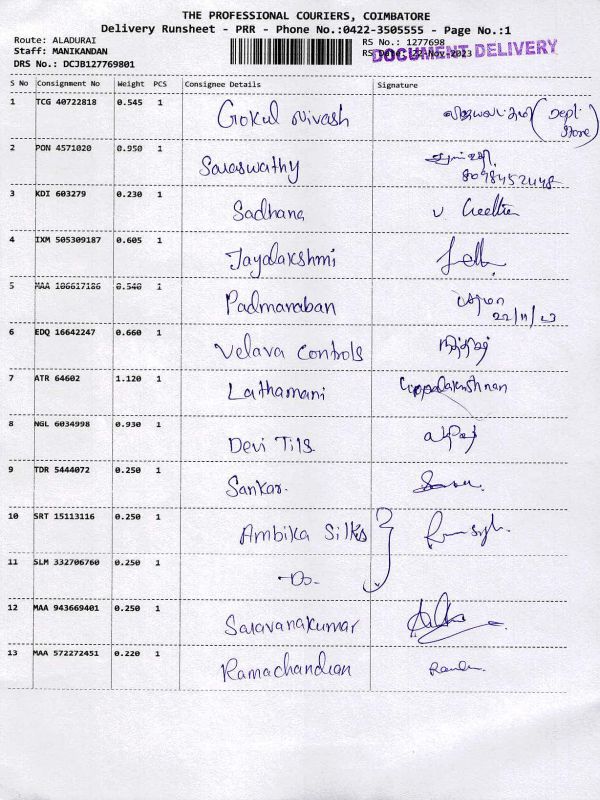 THE PROFESSIONAL COURIERS, COIMBATORE
Delivery Runsheet - PRR - Phone No.:0422-3505555 - Page No.:1
Route: ALADURAI
RS No.: 1277698
Staff: MANIKANDAN
RS Dt.: 22-Nov-2023
DOCUMENT DELIVERY
DRS No.: DCJB127769801
S No Consignment No Weight PCS Consignee Details Signature
1 TCG 40722818 0.545 1 Gokul Nivash (Dept Store)
2 PON 4571020 0.950 1 Saraswathy
8098452448
3 KDI 603279 0.230 1 Sadhana
4 IXM 505309187 0.605 1 Jayalakshmi
5 MAA 106617186 0.540 1 Padmanaban
22/11/23
6 EDQ 16642247 0.660 1 Velava Controls
7 ATR 64602 1.120 1 Lathamani Gopalakrishnan
8 NGL 6034998 0.930 1 Devi Tils
9 TDR 5444072 0.250 1 Sankar.
10 SRT 15113116 0.250 1 Ambika Silks
11 SLM 332706760 0.250 1 -Do-
12 MAA 943669401 0.250 1 Saravanakumar
13 MAA 572272451 0.220 1 Ramachandran